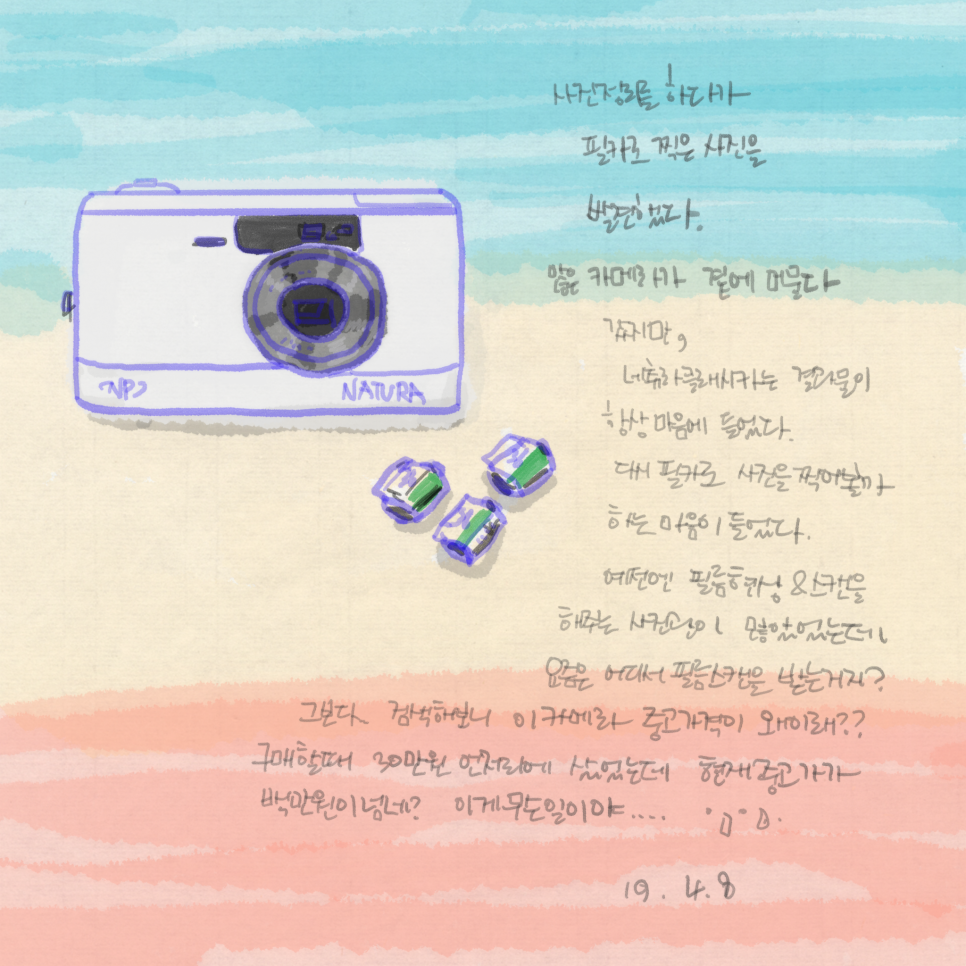 사진정리를 하다가
필카로 찍은 사진을
발견했다.
많은 카메라가 곁에 머물다
갔지만,
네튜라클래시카는 결과물이
항상 마음에 들었다.
다시 필카로 사진을 찍어볼까
하는 마음이 들었다.
예전엔 필름현상 & 스캔을
해주는 사진관이 많았었는데,
요즘은 어디서 필름스캔을 받는거지?
그보다 검색해보니 이 카메라 중고가격이 왜이래??
구매할때 30만원 언저리에 샀었는데 현재 중고가가
백만원이 넘네? 이게 무슨일이야....
19. 4. 8
NATURA